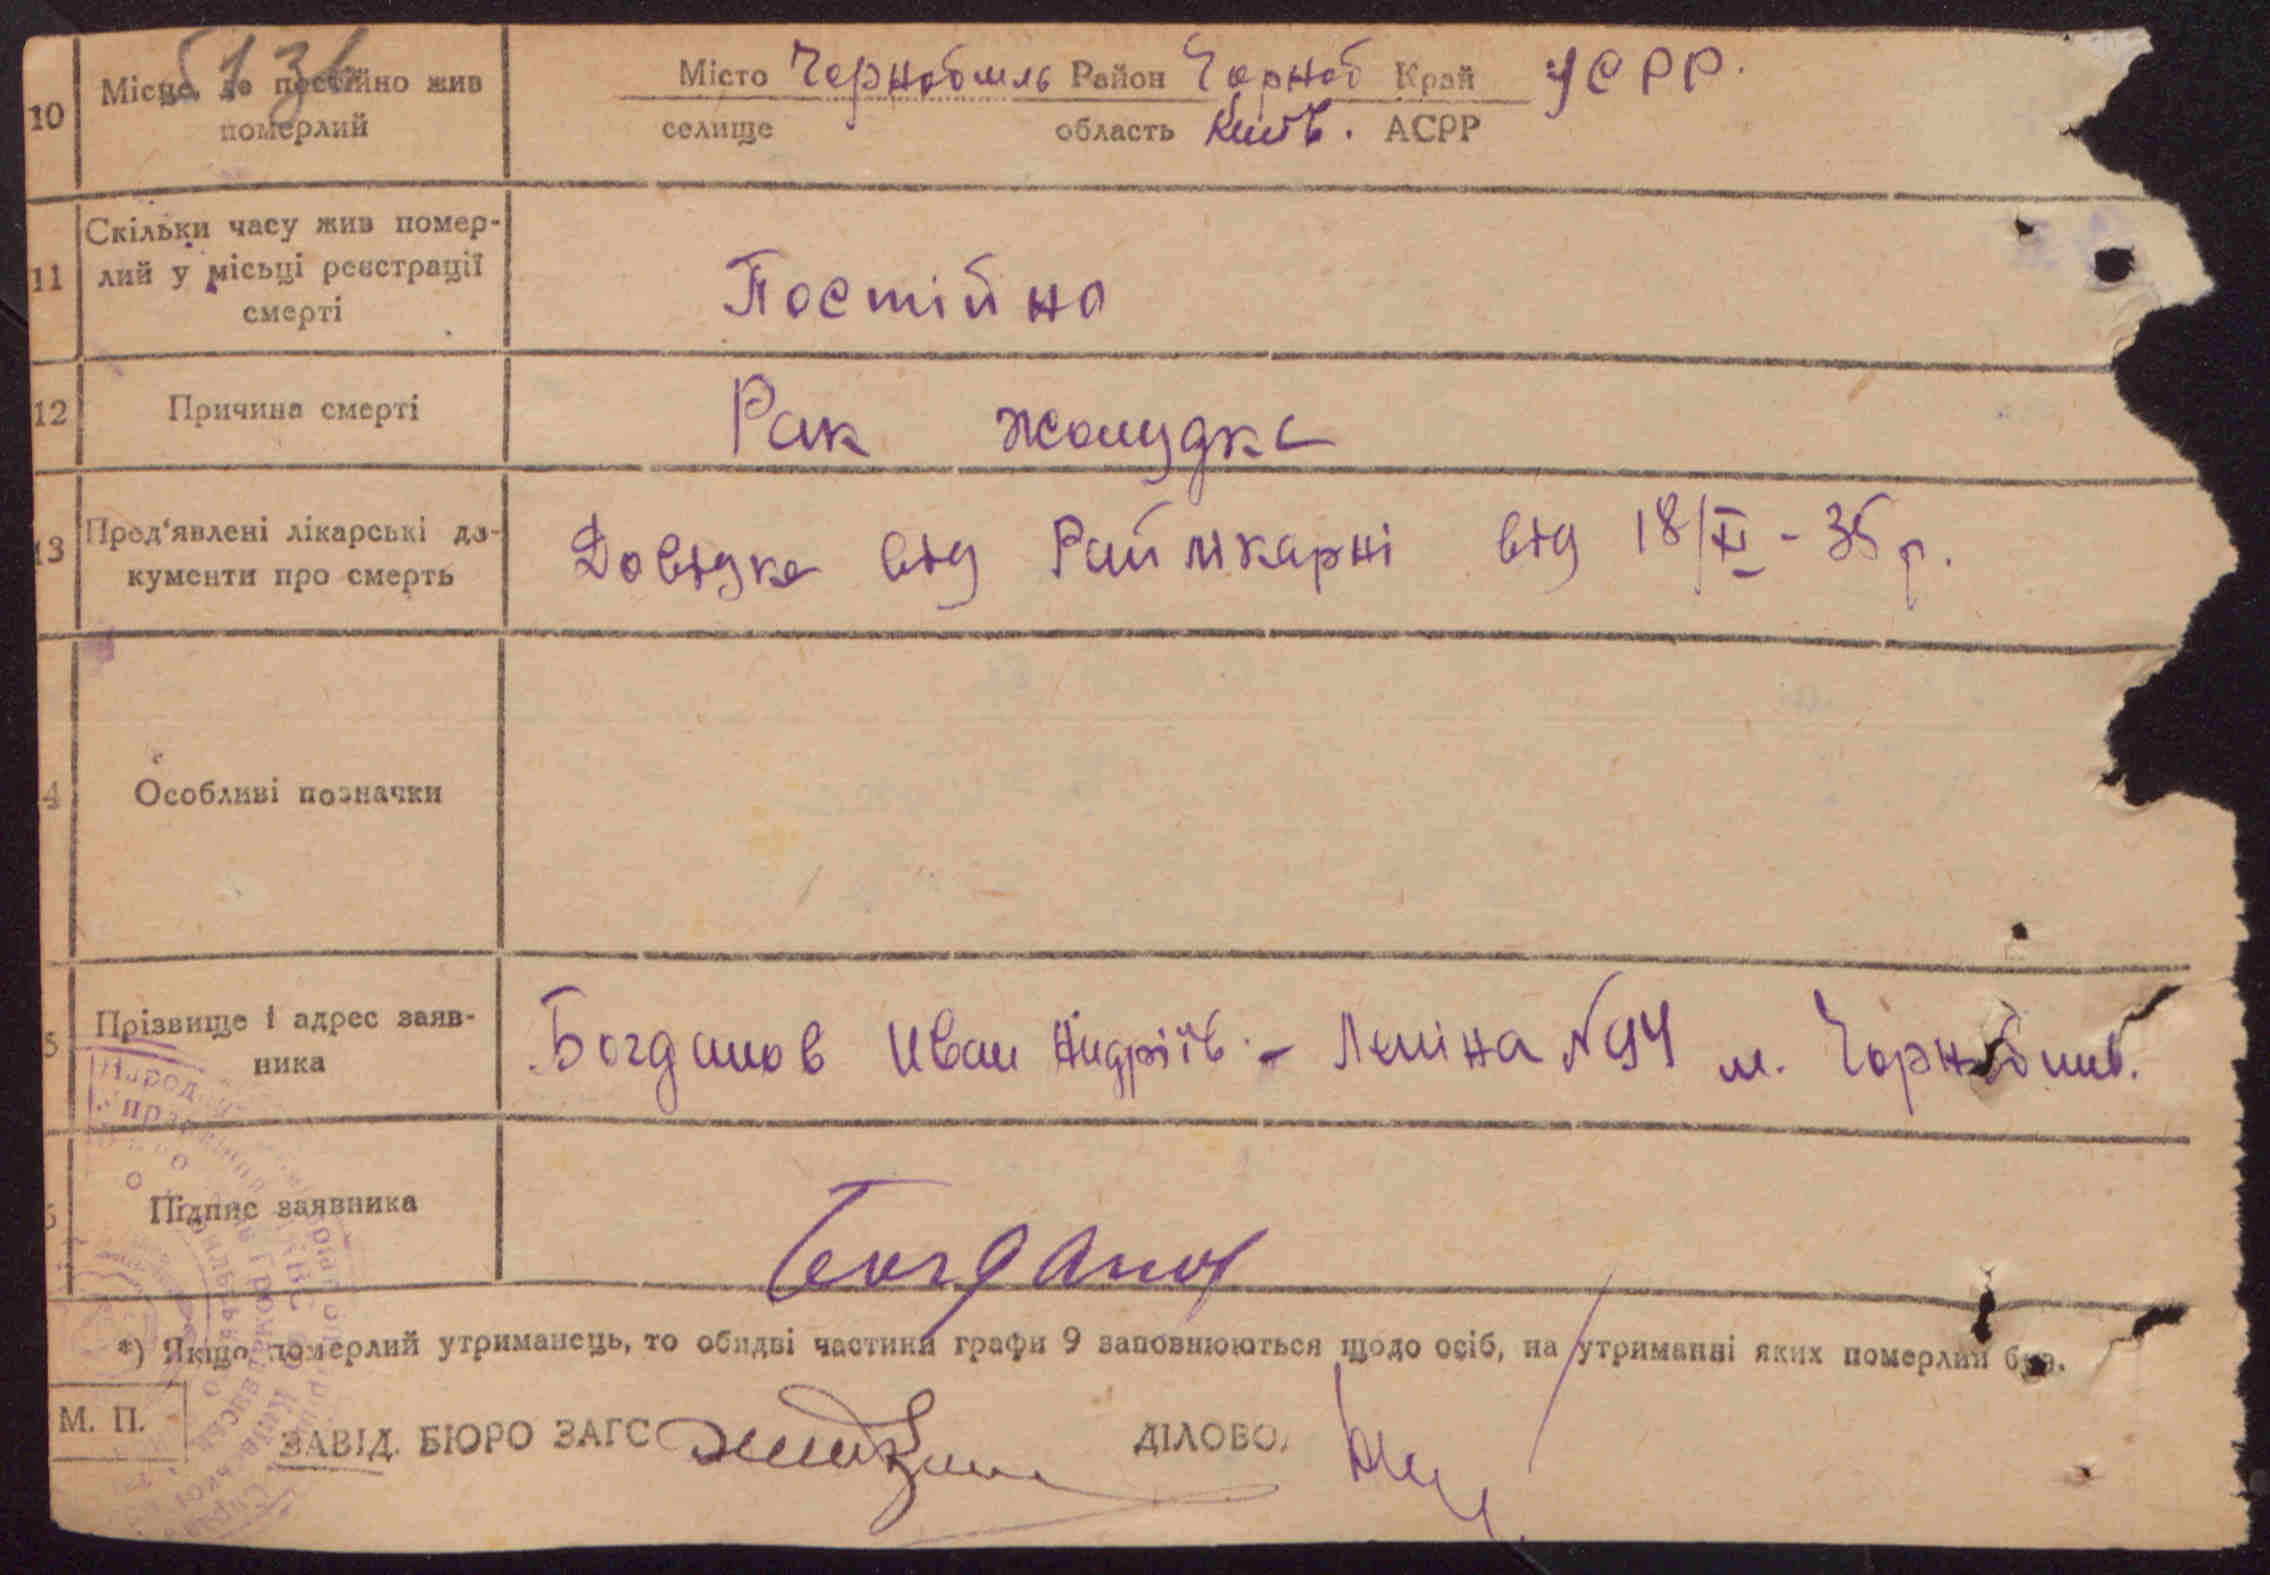 10 Місце, де постійно жив померлий
Місто Чорнобиль Район Чорноб Край УСРР.
селище область Київ. АСРР
11 Скільки часу жив помер-
лий у місьці реєстрації
смерті
Постійно
12 Причина смерті
Рак жолудка
13 Пред'явлені лікарські до-
кументи про смерть
Довідка від Райлікарні від 18/XI - 35 р.
4 Особливі позначки
5 Прізвище і адрес заяв-
ника
Богданов Иван Андріїв. - Леніна N 94 м. Чорнобиль.
Підпис заявника
Богданов
*) Якщо померлий утриманець, то обидві частини графи 9 заповнюються щодо осіб, на утриманні яких померлий був.
М. П.
ЗАВІД. БЮРО ЗАГС ДІЛОВОД